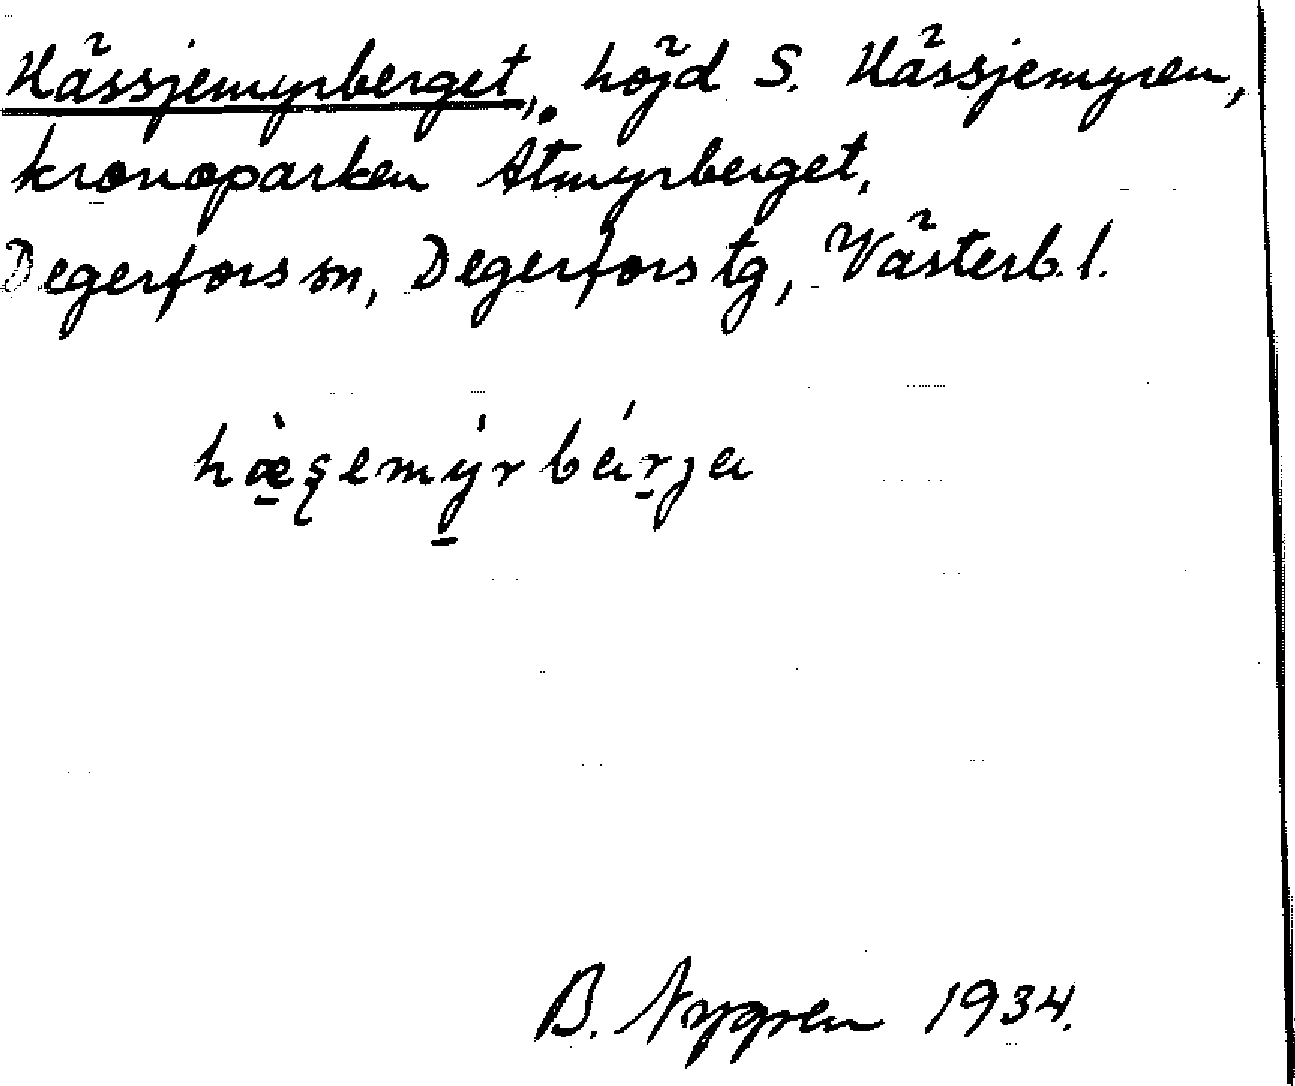 Hässjemyrberget, höjd S. Hässjemyren,
kronoparken Åtmyrberget,
Degerfors sn, Degerfors tg, Västerb. l.
hæ̀șemy̍rbárjα
B. Nygren 1934.